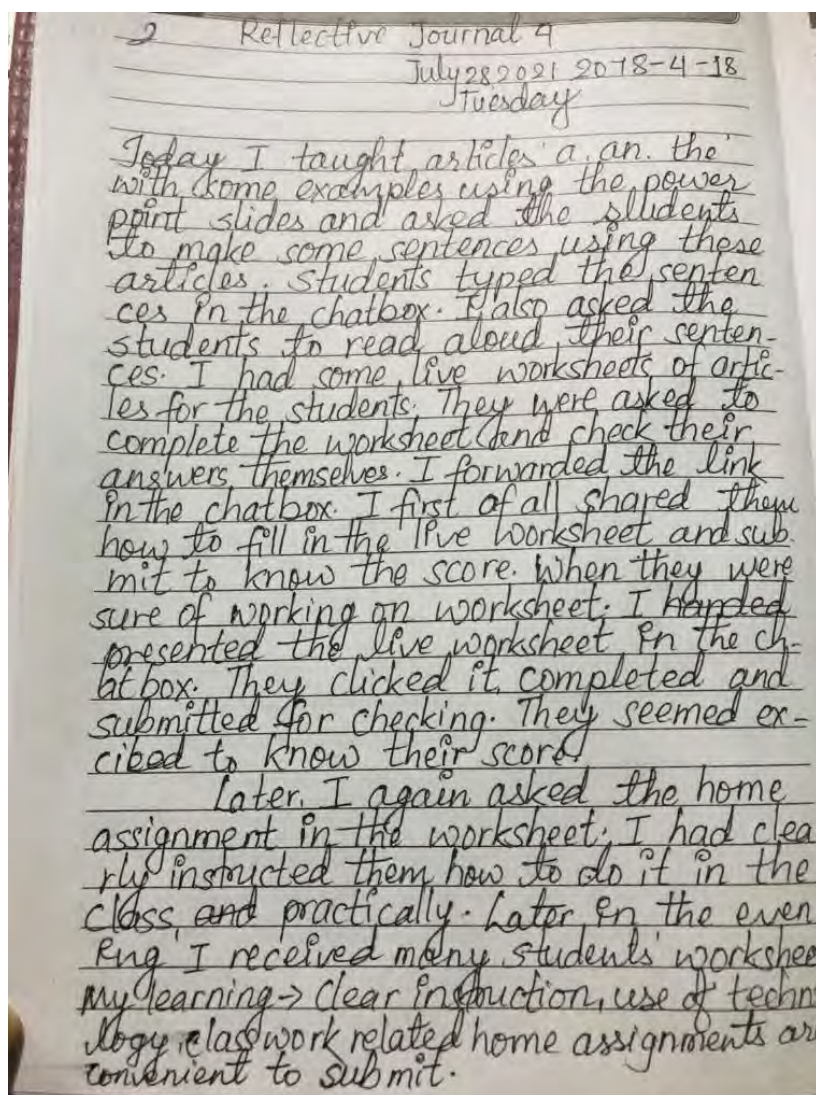 2 Reflective Journal 4
July 28 2021 2078-4-18
Tuesday
Today I taught articles 'a, an, the'
with some examples using the power
point slides and asked the students
to make some sentences using these
articles. Students typed the senten
ces in the chatbox. I also asked the
students to read aloud their senten-
ces. I had some live worksheets of artic-
les for the students. They were asked to
complete the worksheet and check their
answers themselves. I forwarded the link
in the chatbox. I first of all shared them
how to fill in the live worksheet and sub.
mit to know the score. When they were
sure of working on worksheet. I handed
presented the live worksheet in the ch-
at box. They clicked it, completed and
submitted for checking. They seemed ex-
cibed to know their score.
Later, I again asked the home
assignment in the worksheet. I had clea
rly instructed them how to do it in the
class and practically. Later in the even
ing I received many students' workshee
My learning → Clear instruction, use of techn
logy, classwork related home assignments ar
convenient to submit.